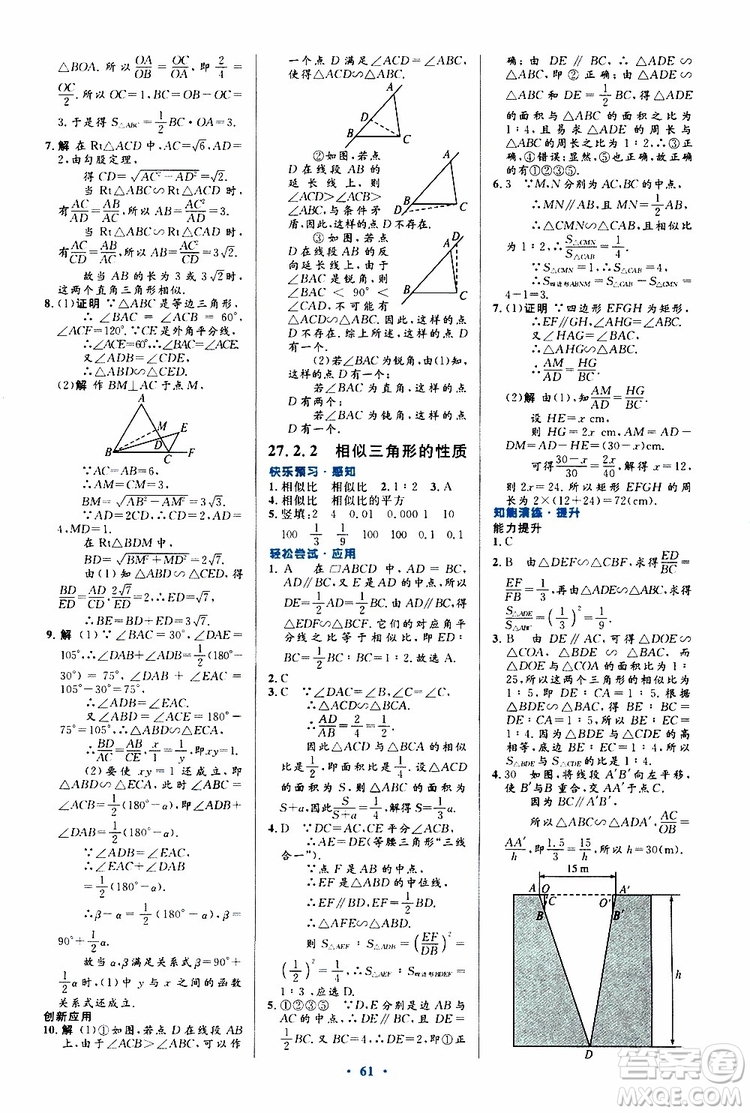 △BOA. 所以 OA/OB = OC/OA, 即 2/4 =
OC/2. 所以 OC=1, BC=OB-OC=
3. 于是得 S△ABC = 1/2 BC·OA=3.
7. 解 在 Rt△ACD 中, AC=√6, AD=
2, 由勾股定理,
得 CD=√(AC²-AD²)=√2.
当 Rt△ABC∽Rt△ACD 时,
有 AC/AD = AB/AC, 所以 AB = AC²/AD = 3.
当 Rt△ABC∽Rt△CAD 时,
有 AC/CD = AB/AC, 所以 AB = AC²/CD = 3√2.
故当 AB 的长为 3 或 3√2 时,
这两个直角三角形相似.
8. (1)证明 ∵△ABC 是等边三角形,
∴∠BAC=∠ACB=60°,
∠ACF=120°. ∵CE 是外角平分线,
∴∠ACE=60°, ∴∠BAC=∠ACE.
又∠ADB=∠CDE,
∴△ABD∽△CED.
(2)解 作 BM⊥AC 于点 M,
A
M
E
D
B
C
F
∵AC=AB=6,
∴AM=CM=3,
BM=√(AB²-AM²)=3√3.
∵AD=2CD, ∴CD=2,
AD=4, MD=1.
在 Rt△BDM 中,
BD=√(BM²+MD²)=2√7.
由(1)知△ABD∽△CED, 得
BD/ED = AD/CD, 2√7/ED = 2,
∴ED=√7,
∴BE=BD+ED=3√7.
9. 解 (1)∵∠BAC=30°, ∠DAE=
105°, ∴∠DAB+∠CAE=105°-
30°=75°.
又∠DAB+∠ADB=∠ABC=
75°, ∴∠ADB=∠EAC.
又∠ABD=∠ACE=180°-
75°=105°, ∴△ABD∽△ECA,
∴BD/AC = AB/CE, x/1 = 1/y, 即 xy=1.
(2)要使 xy=1 还成立, 即
△ABD∽△ECA, 此时∠ABC=
∠ACB=1/2(180°-α), 即∠ADB+
∠DAB=1/2(180°-α).
∵∠ADB=∠EAC,
∴∠DAB+∠EAC
=1/2(180°-α),
∴β-α=1/2(180°-α), ∴β=
90°+1/2α.
故当 α,β 满足关系式 β=90°+
1/2α 时, (1)中 y 与 x 之间的函数
关系式还成立.
创新应用
10. 解 (1)①如图, 若点 D 在线段 AB
上, 由于∠ACB>∠ABC, 可以作
一个点 D 满足∠ACD=∠ABC,
使得△ACD∽△ABC.
A
D
B
C
②如图, 若点
D 在线段 AB 的
延长线上, 则
∠ACD>∠ACB>
∠ABC, 与条件矛
盾, 因此, 这样的点 D 不存在.
A
B
C
D
③如图, 若点
D 在线段 AB 的反
向延长线上, 由于
∠BAC 是锐角, 则
∠BAC<90°<
∠CAD, 不可能有
△ACD∽△ABC. 因此, 这样的点
D 不存在. 综上所述, 这样的点 D
有一个.
D
A
B
C
(2)若∠BAC 为锐角, 由(1)知,
这样的点 D 有一个;
若∠BAC 为直角, 这样的点 D
有两个;
若∠BAC 为钝角, 这样的点 D
有一个.
27.2.2 相似三角形的性质
快乐预习·感知
1. 相似比 相似比 2. 1∶2 3. A
4. 相似比 相似比的平方
5. 竖填: 2 4 0.01 0.000 1 10
100 1/3 1/9 100 100 10 0.1 0.1
轻松尝试·应用
1. A 在▱ABCD 中, AD=BC,
DE=1/2AD=1/2BC. 由 AD∥BC, 得
△EDF∽△CBF. 它们的对应角平
分线之比等于相似比, 即 ED∶
BC=1/2, 故选 A.
2. C
3. C ∵∠DAC=∠B, ∠C=∠C,
∴△DAC∽△ABC,
∴AD/AB = 2/4 = 1/2.
因为两个三角形的对应边之
比, 即相似比是 1/2, 且△DAC 的面
积是 S, 所以△ABC 的面积为
S+a, 因此 S/(S+a) = 1/4, 解得 S=1/3a.
4. D ∵DC=AC, CF 平分∠ACB,
∴AF=DF(等腰三角形“三线
合一”).
∵点 F 是 AD 的中点,
∴EF 为△ABD 的中位线,
∴△AFE∽△ADB,
则 S△AEF∶S△ABD=(EF/DB)²=
(1/2)²=1/4, ∴S△AEF∶S四边形BDFE=
1∶3, 应选 D.
5. ①②③⑤ ∵D,E 分别是边 AB 与
AC 的中点, ∴DE∥BC, DE=
1/2BC, BC=2DE, 即①③正
确; 由 DE∥BC, ∴△ADE∽
△ABC, 即②正确; ∴△ADE
的面积与△ABC 的面积之比为
1∶4, 而△ADE 的周长与
△ABC 的周长之比为 1∶2, ∴④
正确, ④错误; 显然, ⑤正确, ∴正
确的有①②③⑤.
6. 3 ∵M,N 分别为 AC,BC 的中点,
∴MN∥AB, 且 MN=1/2AB,
∴△CMN∽△CAB, 且相似比
为 1∶2, ∴S△CMN/S△CAB = 1/4.
∵S△CMN=1, ∴S△CAB=4,
∴S四边形ABNM=S△CAB-S△CMN=
4-1=3.
7. (1)证明 ∵四边形 EFGH 为矩形,
∴EF∥GH, ∴∠AHG=∠ABC.
又∠HAG=∠BAC,
∴△AHG∽△ABC,
∴AM/AD = HG/BC.
(2)解 由(1), 知 AM/AD = HG/BC.
设 HE=x cm, 则 HG=2x cm,
AM=AD-DM=AD-HE=
30-x(cm).
可得 (30-x)/30 = 2x/40, 解得 x=12,
则 2x=24. 所以矩形 EFGH 的周
长为 2×(12+24)=72(cm).
知能演练·提升
能力提升
1. C
2. B 由△DEF∽△CBF, 得 ED/BC =
EF/FB = 1/3, 由△ADE∽△ACB, 得
S△ADE/S△ACB = (1/3)² = 1/9.
3. B 由 DE∥AC, 可得△DOE∽
△COA, △BDE∽△BAC. 由
△DOE 与△COA 的面积比为 1∶
25, 所以这两个三角形的相似比为
1∶5, 即 DE∶CA=1∶5. 由
△BDE∽△BAC, 可得 BE∶BC=
DE∶CA=1∶5, 所以 BE∶EC=
1∶4. 由于△BDE 与△CDE 的高
相等, 底边 BE∶EC=1∶4, 所以
S△BDE与S△CDE的比是 1∶4.
4. 30 如图, 将线段 A′B′向左平移,
使 B′与 B 重合, A′移动到点 C.
因为 BC∥A′B′, 所以 △ABC∽△ADA′, 所以 AC/OB =
AA′/h, 即 1.5/3 = 15/h, 所以 h=30(m).
15 m
A O
C
B
O′ A′
B′
h
D
· 61 ·
答案圈
MXQE.COM